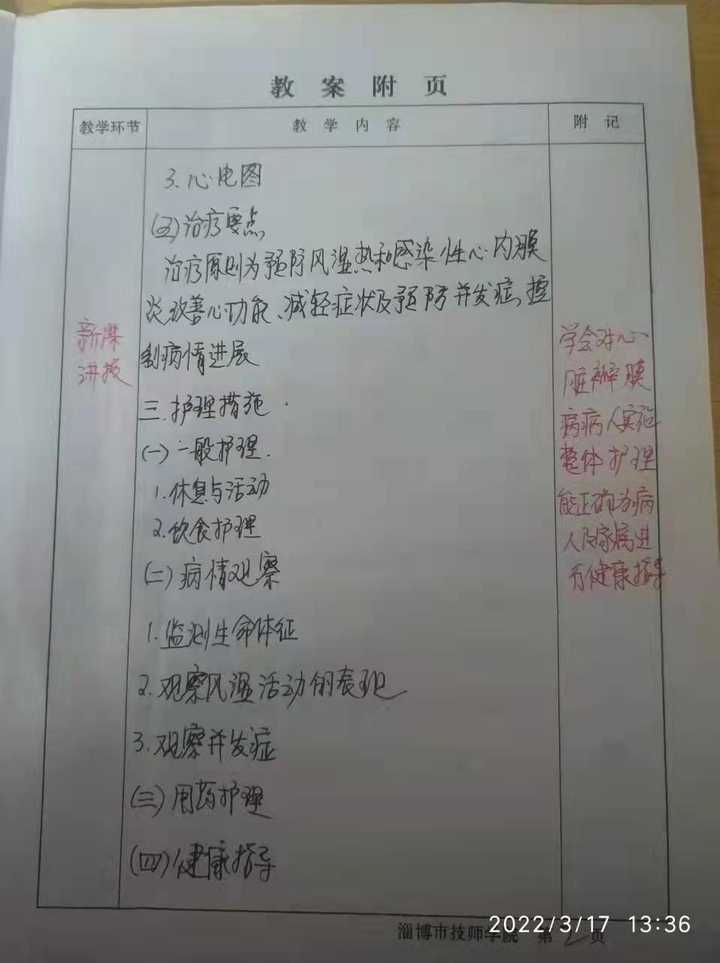 教案附页
教学环节 教学内容 附记
3.心电图
(五)治疗要点
治疗原则为预防风湿热和感染性心内膜
炎改善心功能、减轻症状及预防并发症,控
制病情进展
三.护理措施.
(一)一般护理.
1.休息与活动
2.饮食护理
(二)病情观察
1.监测生命体征
2.观察风湿活动的表现
3.观察并发症
(三)用药护理
(四)健康指导
新课
讲授
学会对心
脏瓣膜
病病人实施
整体护理
能正确为病
人及家属进
行健康指导
淄博市技师学院 第2页
2022/3/17 13:36